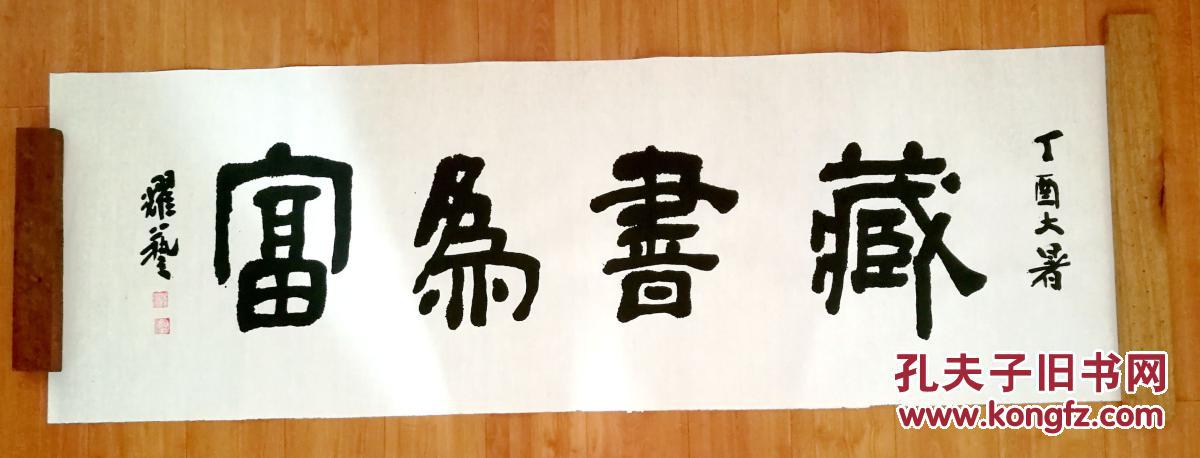 丁酉大暑
藏書為富
耀藝
孔夫子旧书网
www.kongfz.com